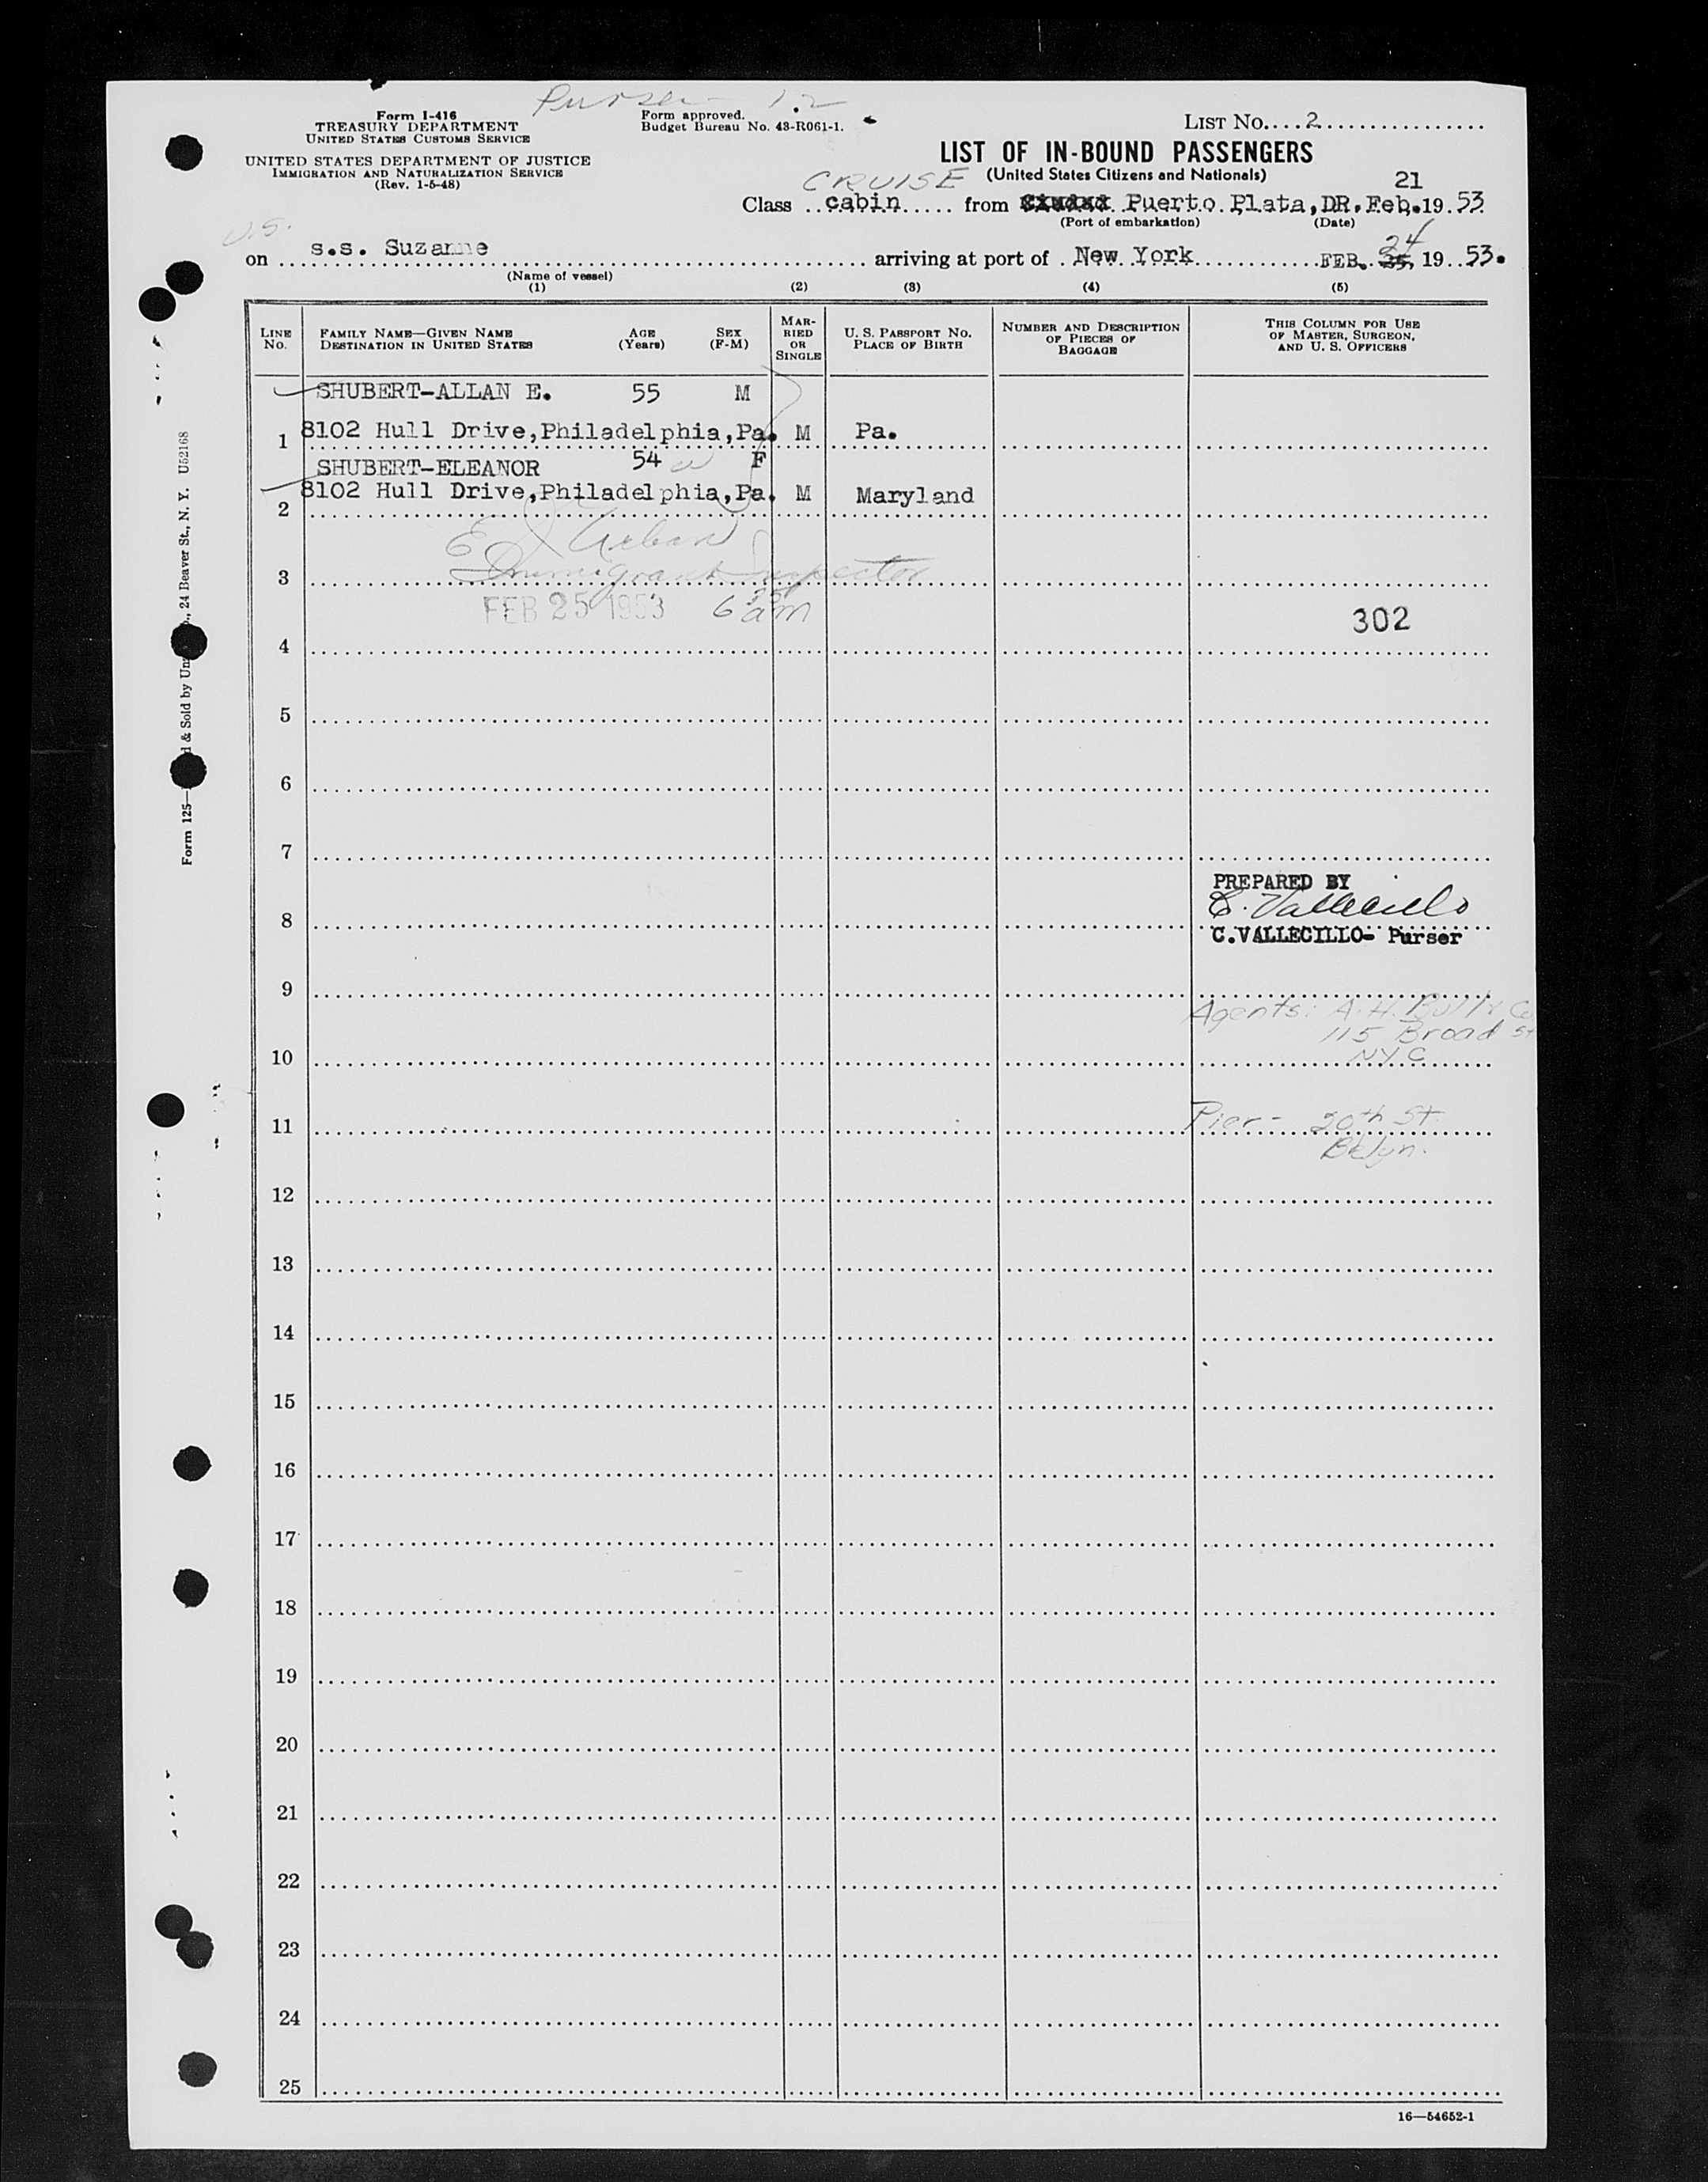 Purser 1.2
Form I-416
TREASURY DEPARTMENT
UNITED STATES CUSTOMS SERVICE
UNITED STATES DEPARTMENT OF JUSTICE
IMMIGRATION AND NATURALIZATION SERVICE
(Rev. 1-5-48)
Form approved.
Budget Bureau No. 43-R061-1.
LIST No. 2
LIST OF IN-BOUND PASSENGERS
(United States Citizens and Nationals)
CRUISE
21
Class cabin from Puerto Plata, DR. Feb. 19 53
(Port of embarkation) (Date)
U.S.
24
on s.s. Suzanne arriving at port of New York FEB. 25, 19 53.
(Name of vessel)
(1) (2) (3) (4) (5)
LINE No.
FAMILY NAME—GIVEN NAME
DESTINATION IN UNITED STATES
AGE (Years)
SEX (F-M)
MARRIED OR SINGLE
U. S. PASSPORT No.
PLACE OF BIRTH
NUMBER AND DESCRIPTION OF PIECES OF BAGGAGE
THIS COLUMN FOR USE OF MASTER, SURGEON, AND U. S. OFFICERS
SHUBERT-ALLAN E. 55 M
1 8102 Hull Drive,Philadelphia,Pa. M Pa.
SHUBERT-ELEANOR 54 F
8102 Hull Drive,Philadelphia,Pa. M Maryland
2
E J Urban
3 Immigrant Inspector
FEB 25 1953 6 am
302
4
5
6
7
PREPARED BY
C. Vallecillo
8
C.VALLECILLO- Purser
9
Agents: A.H. Bull & Co
115 Broad St
10 NYC
11 Pier- 20th St
Bklyn.
12
13
14
15
16
17
18
19
20
21
22
23
24
25
16—54652-1
Form 125— & Sold by , 24 Beaver St., N. Y. U52168